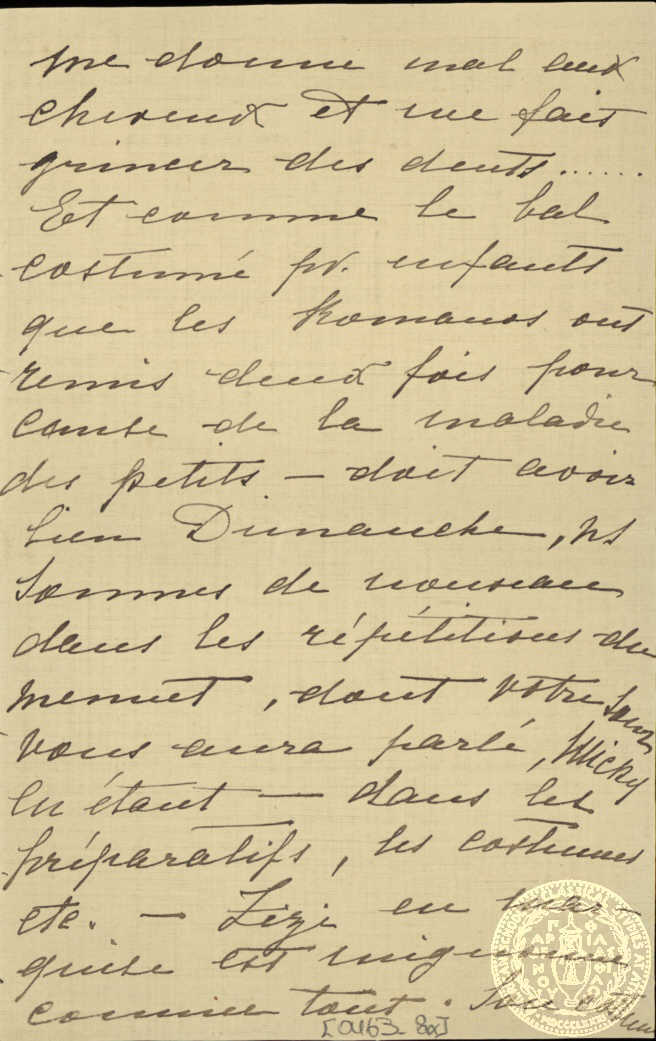 me donne mal aux
cheveux et me fait
grincer des dents......
Et comme le bal
costumé pr. enfants
que les Romanos ont
remis deux fois pour
cause de la maladie
des petits — doit avoir
lieu Dimanche, ns
sommes de nouveau
dans les répétitions du
menuet, dont votre sœur
vous aura parlé, Micky
en étant — dans les
préparatifs, les costumes
etc. — Zizi en mar-
quise est mignonne
comme tout. Son costume
[0163 8α]